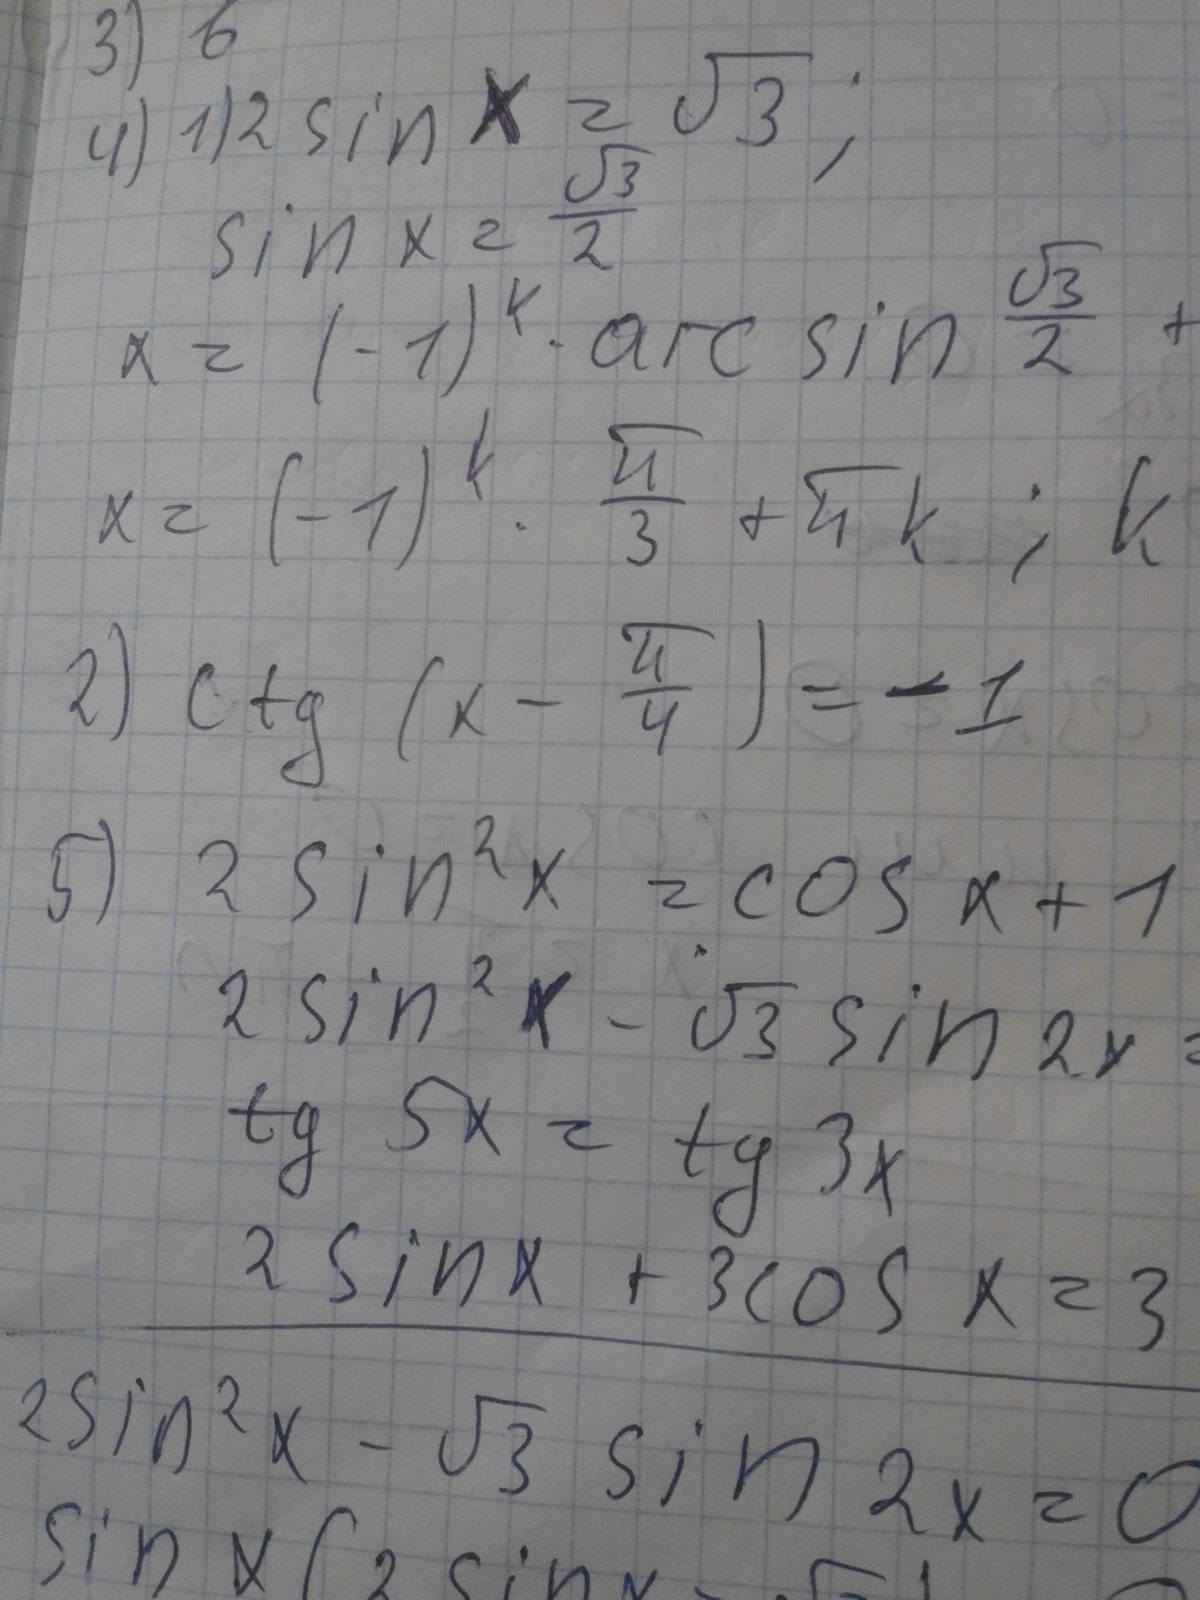 3) 6
4) 1) 2 sin x = √3 ;
sin x = √3/2
x = (-1)^k · arc sin √3/2 +
x = (-1)^k · π/3 + πk ; k
2) ctg (x - π/4) = -1
5) 2 sin²x = cos x + 1
2 sin²x - √3 sin 2x =
tg 5x = tg 3x
2 sinx + 3cos x = 3
2sin²x - √3 sin 2x = 0
sin x (2 sinx -